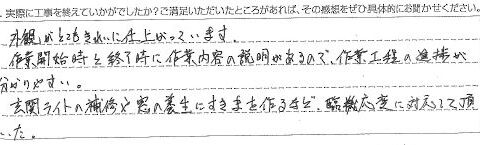 .実際に工事を終えていかがでしたか?ご満足いただいたところがあれば、その感想をぜひ具体的にお聞かせください。
外観がとてもきれいに仕上がっています。
作業開始時と終了時に作業内容の説明があるので、作業工程の進捗が
分かりやすい。
玄関ライトの補修や窓の養生にすき手を作るなど、臨機応変に対応して頂
いた。